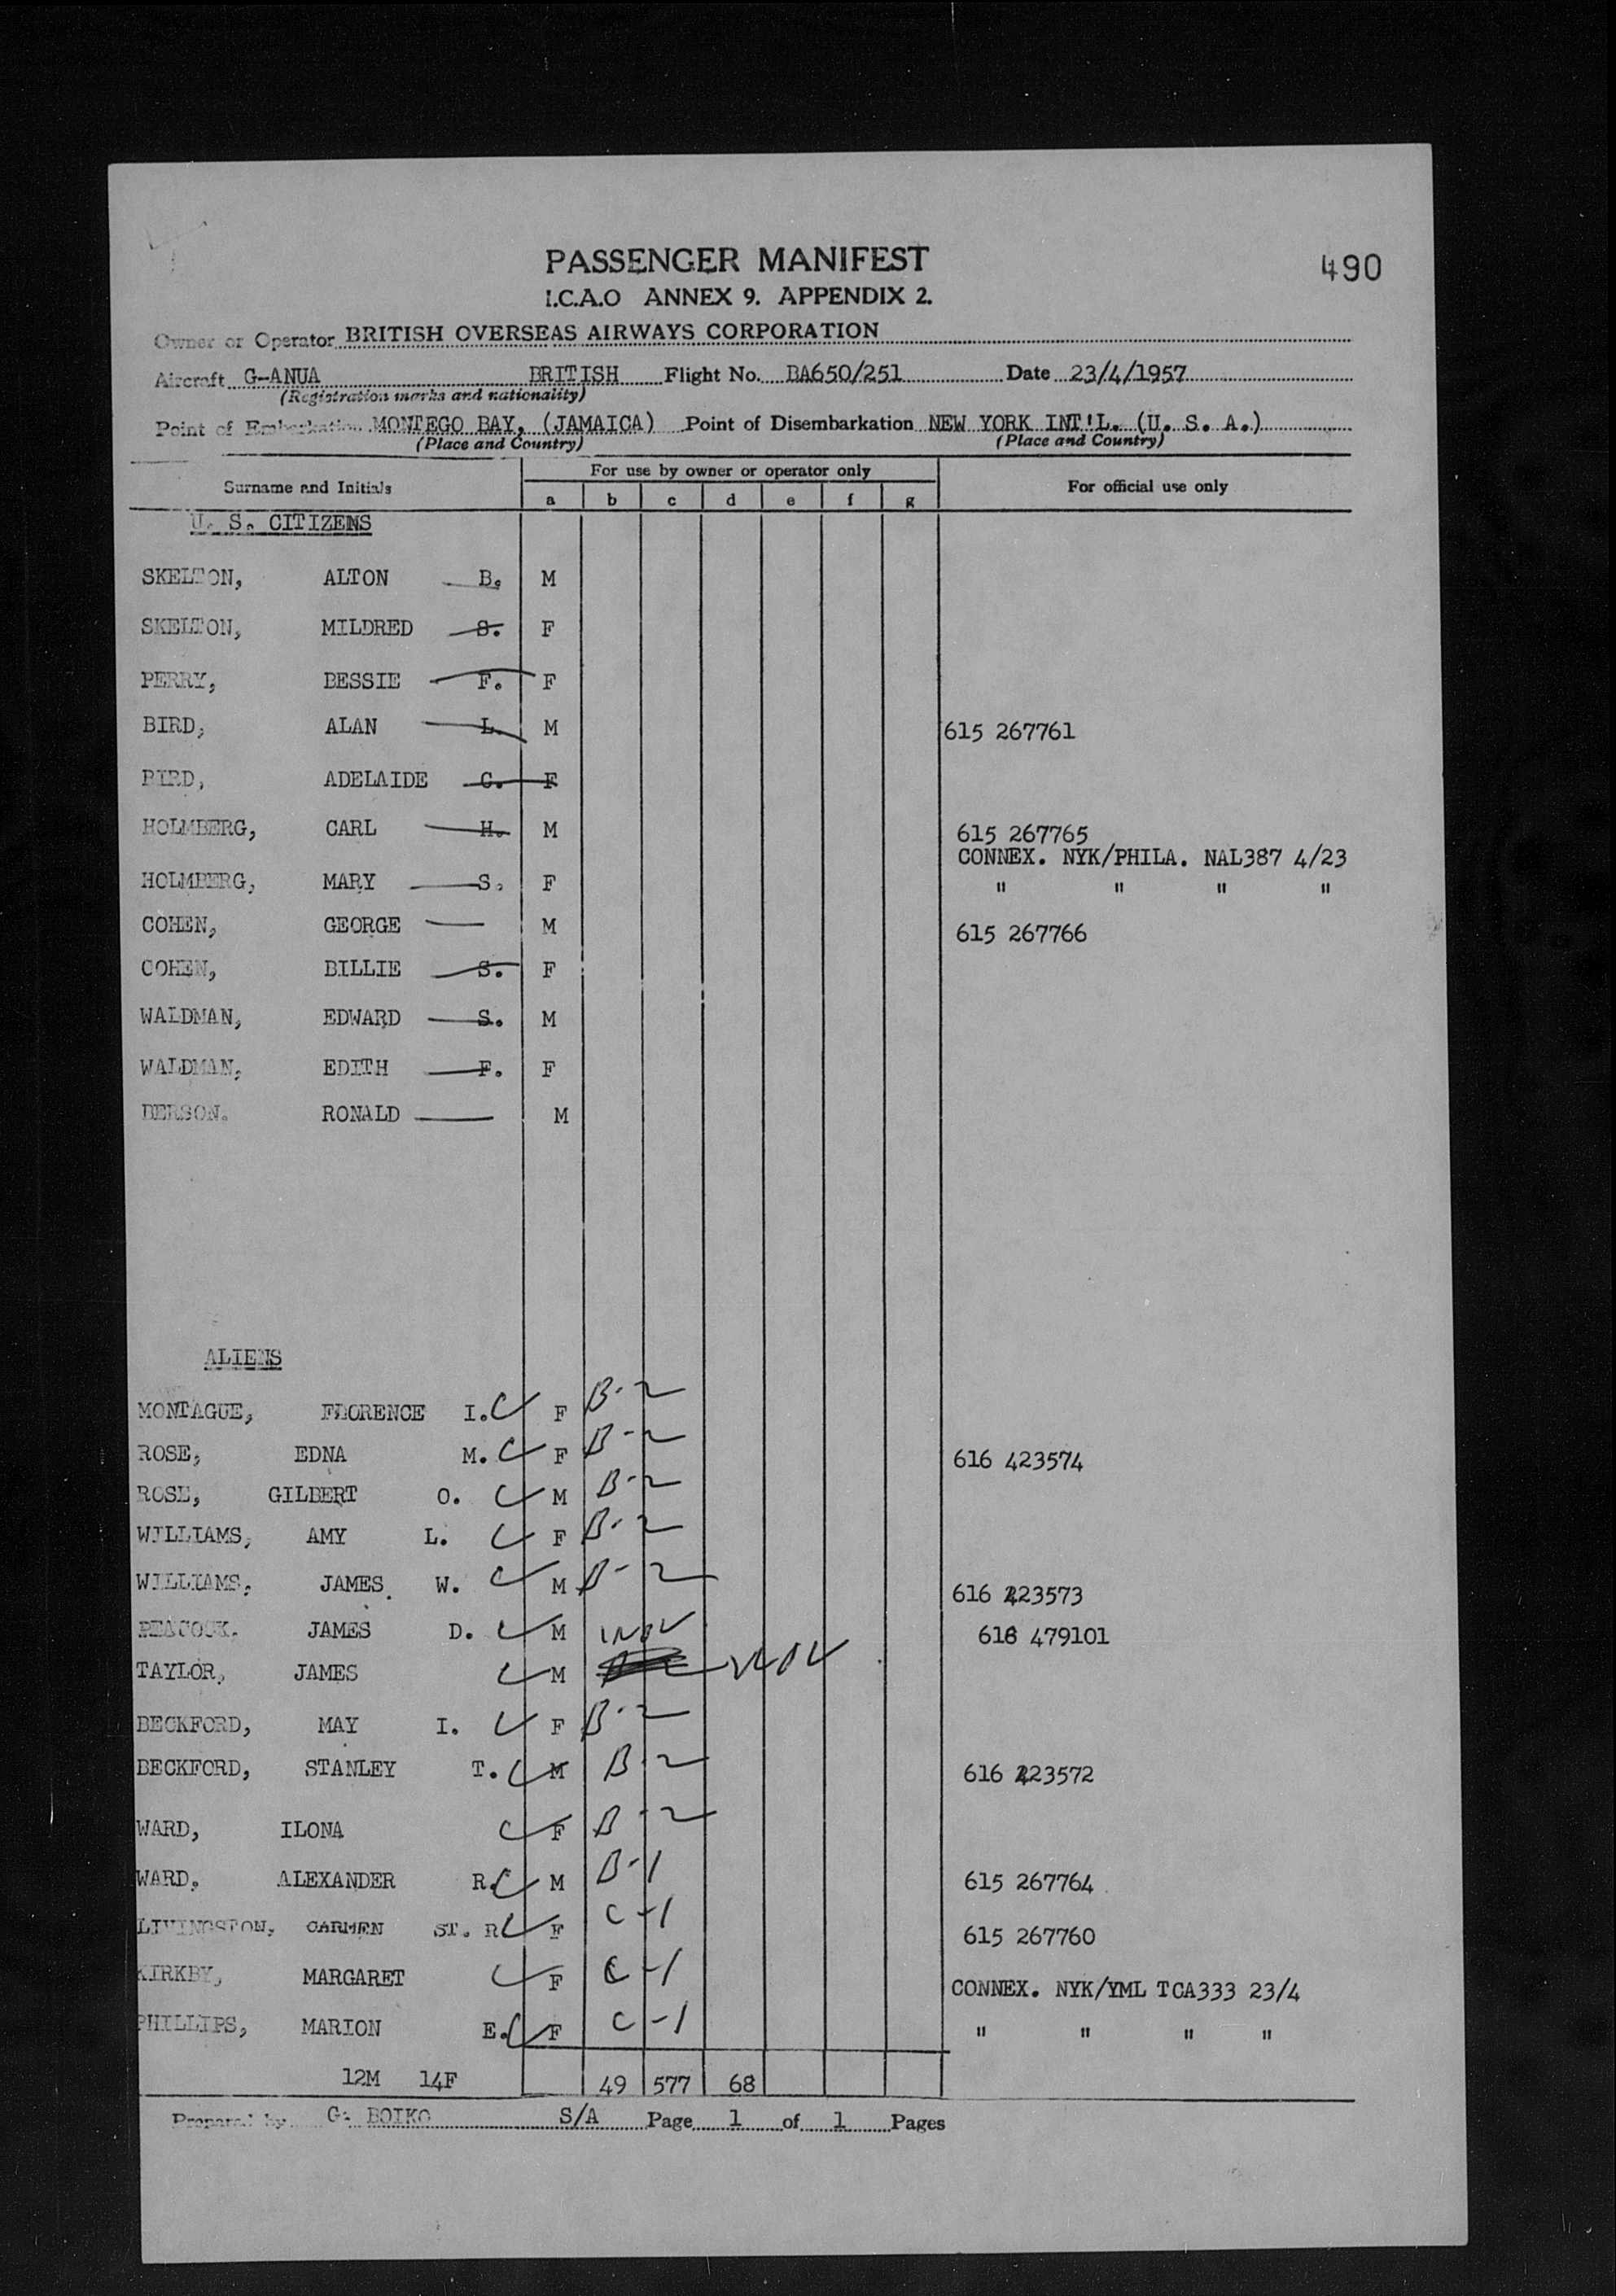 PASSENGER MANIFEST
490
I.C.A.O ANNEX 9. APPENDIX 2.
Owner or Operator BRITISH OVERSEAS AIRWAYS CORPORATION
Aircraft G-ANUA BRITISH Flight No. BA650/251 Date 23/4/1957
(Registration marks and nationality)
Point of Embarkation MONTEGO BAY, (JAMAICA) Point of Disembarkation NEW YORK INT'L. (U. S. A.)
(Place and Country) (Place and Country)
For use by owner or operator only
Surname and Initials a b c d e f g For official use only
U. S. CITIZENS
SKELTON, ALTON B. M
SKELTON, MILDRED S. F
PERRY, BESSIE F. F
BIRD, ALAN L. M 615 267761
BIRD, ADELAIDE C. F
HOLMBERG, CARL H. M 615 267765
CONNEX. NYK/PHILA. NAL387 4/23
HOLMBERG, MARY S. F " " " "
COHEN, GEORGE M 615 267766
COHEN, BILLIE S. F
WALDMAN, EDWARD S. M
WALDMAN, EDITH F. F
BERSON. RONALD M
ALIENS
MONTAGUE, FLORENCE I. C F B-2
ROSE, EDNA M. C F B-2 616 423574
ROSE, GILBERT O. C M B-2
WILLIAMS, AMY L. C F B-2
WILLIAMS, JAMES W. C M B-2 616 423573
PEACOCK. JAMES D. C M 616 479101
TAYLOR, JAMES C M
BECKFORD, MAY I. C F B-2
BECKFORD, STANLEY T. C M B-2 616 423572
WARD, ILONA C F B-2
WARD, ALEXANDER R. C M B-1 615 267764
LIVINGSTON, CARMEN ST. R C F C-1 615 267760
KIRKBY, MARGARET C F C-1 CONNEX. NYK/YML TCA333 23/4
PHILLIPS, MARION E. C F C-1 " " " "
12M 14F 49 577 68
Prepared by G. BOIKO S/A Page 1 of 1 Pages